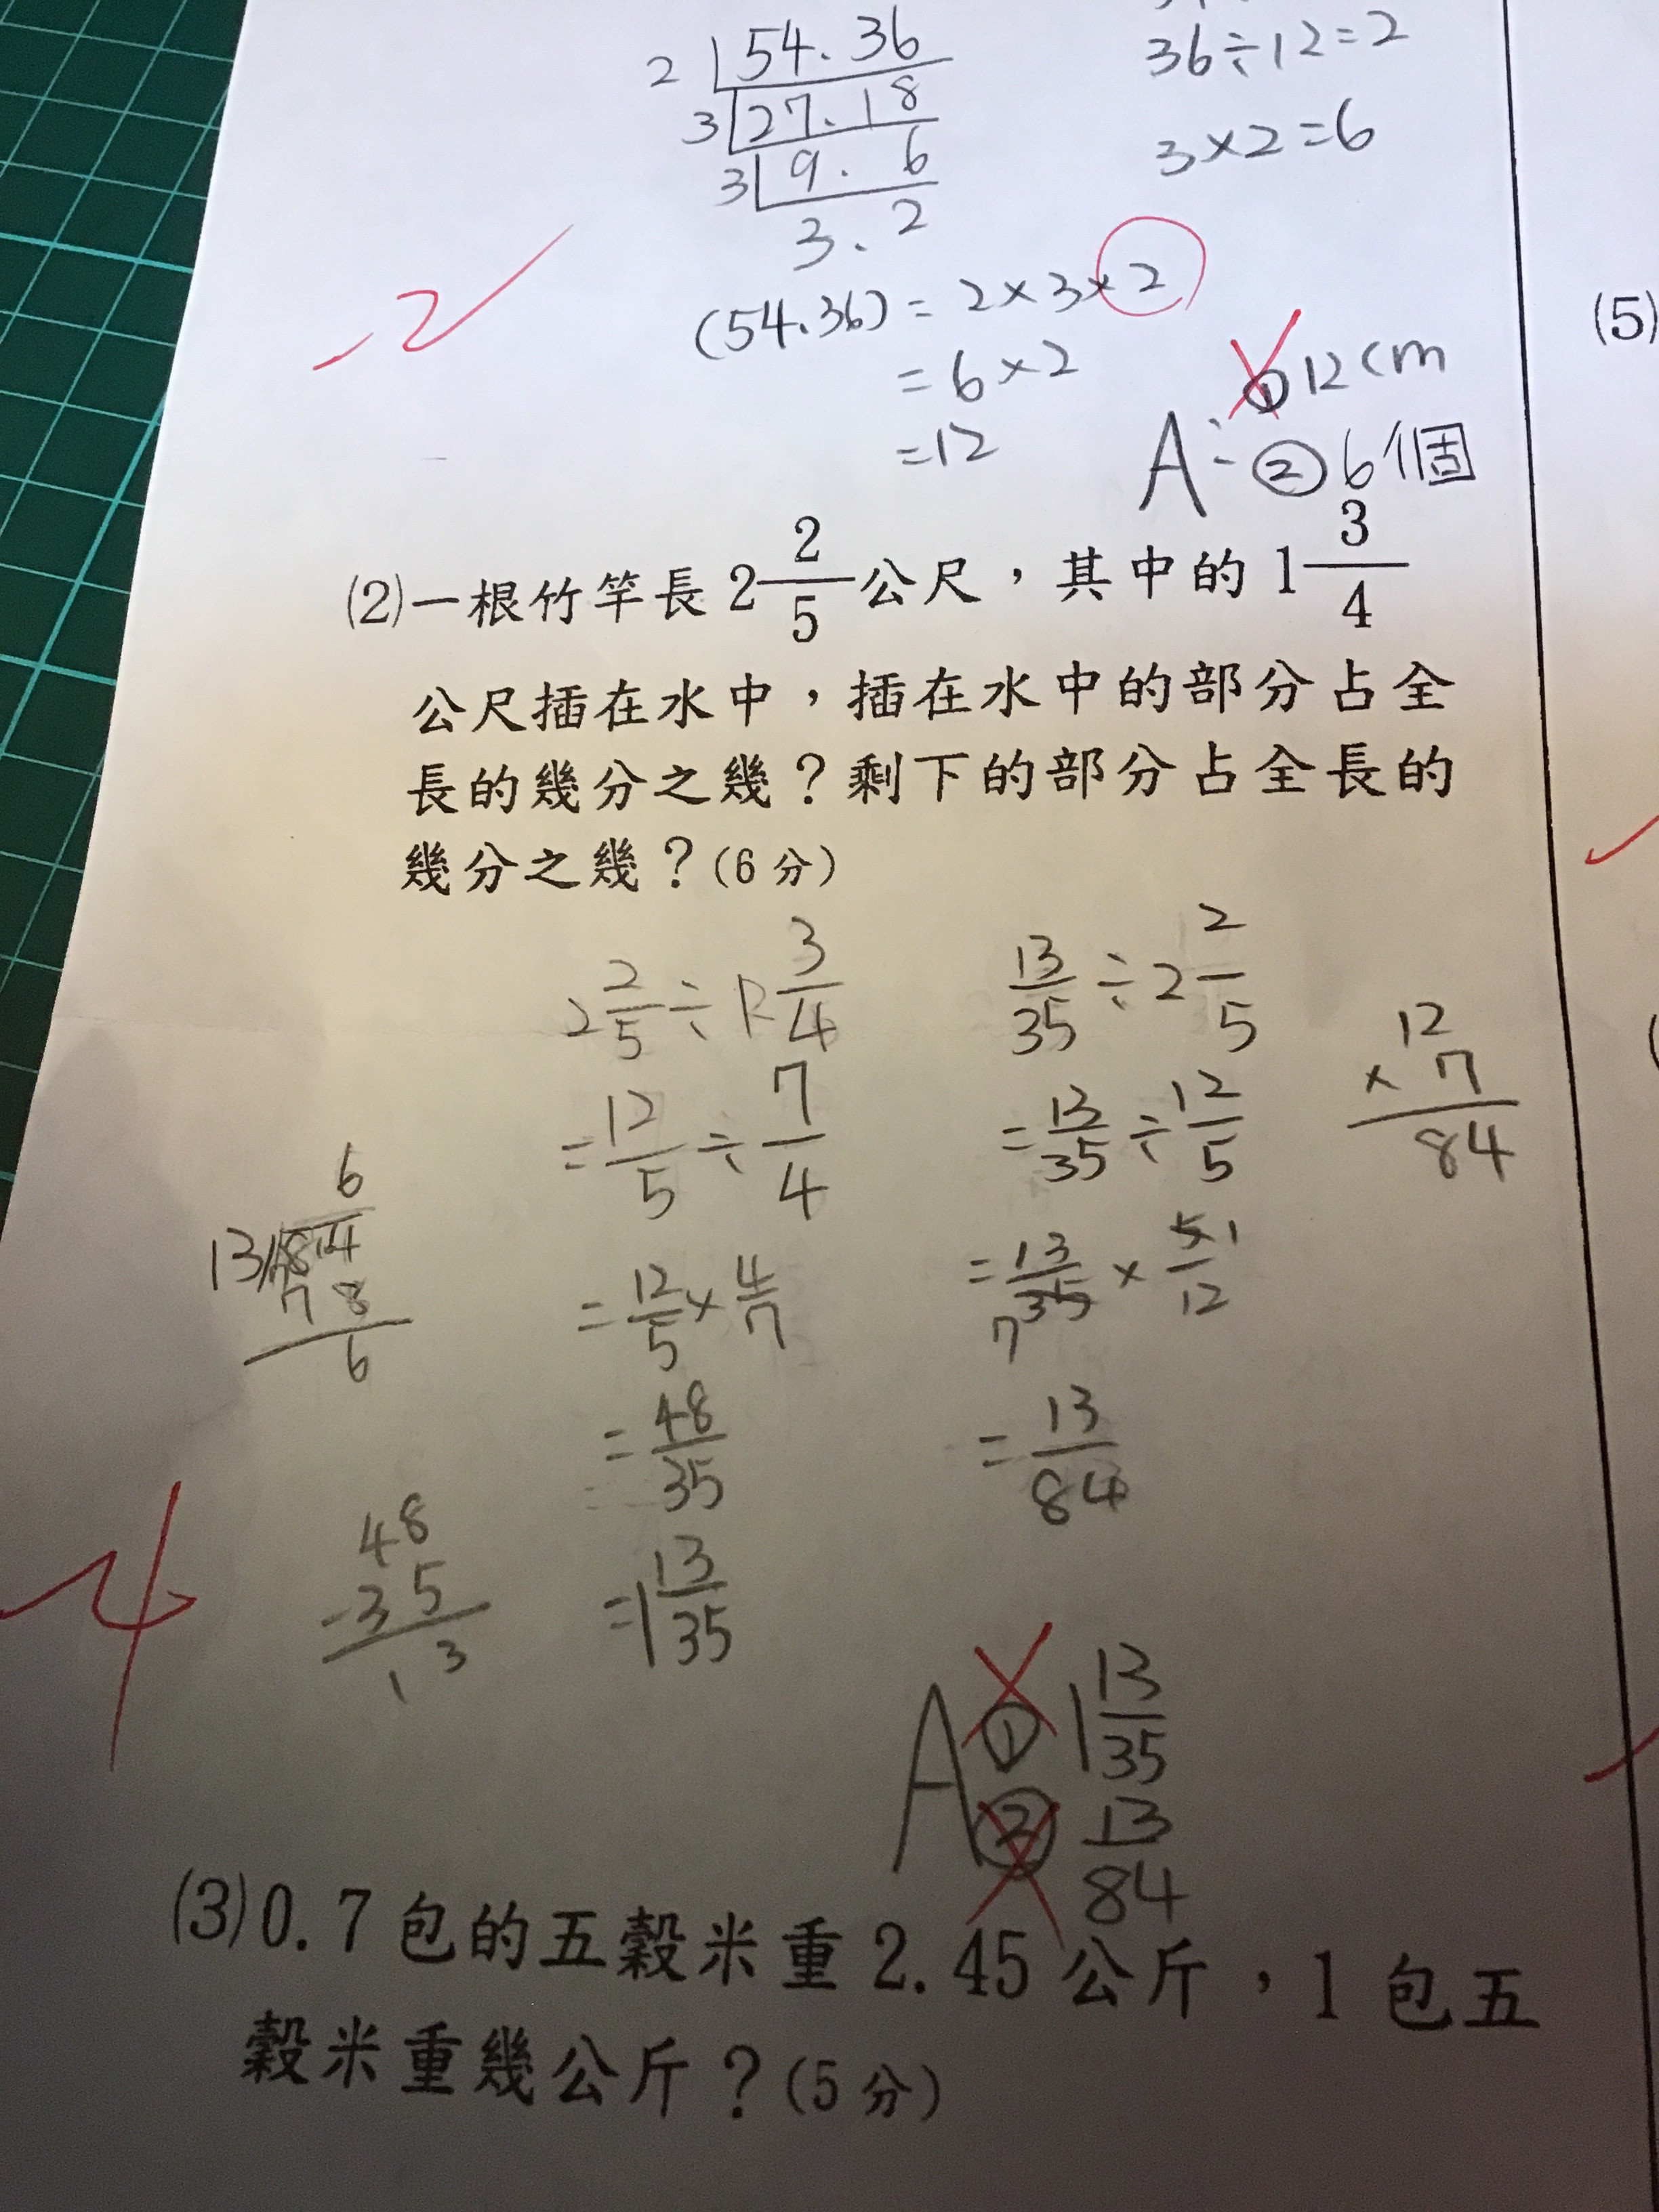 2 54.36
3 27.18
3 9.6
3.2
36÷12=2
3×2=6
-2
(54.36)=2×3×2
=6×2
=12
A: ①12cm
②6個
(5)
(2)一根竹竿長2 2/5公尺，其中的1 3/4
公尺插在水中，插在水中的部分占全
長的幾分之幾？剩下的部分占全長的
幾分之幾？(6分)
2 2/5÷1 3/4
=12/5÷7/4
=12/5×4/7
=48/35
=1 13/35
13/35÷2 2/5
=13/35÷12/5
=13/35×5/12
7 1
=13/84
12
×7
84
6
13 84
78
6
48
-35
13
-4
A ①1 13/35
②13/84
(3)0.7包的五穀米重2.45公斤，1包五
穀米重幾公斤？(5分)